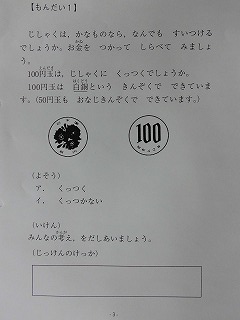 【もんだい1】
じしゃくは、かなものなら、なんでも すいつける
でしょうか。お金を つかって しらべて みましょ
う。
100円玉は、じしゃくに くっつくでしょうか。
100円玉は 白銅という きんぞくで できていま
す。(50円玉も おなじきんぞくで できています。)
100
(よそう)
ア. くっつく
イ. くっつかない
(いけん)
みんなの考え、をだしあいましょう。
(じっけんのけっか)
-3-